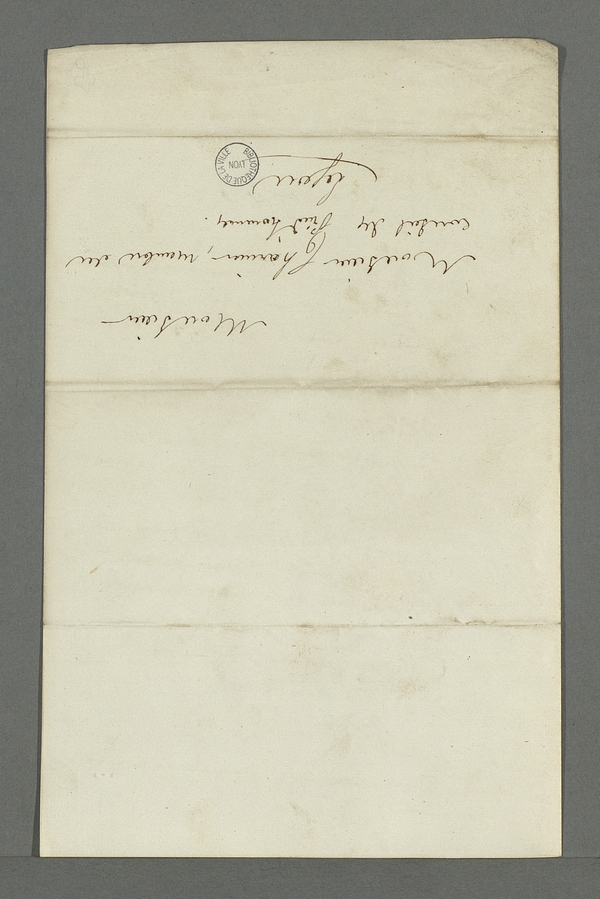 Monsieur
Monsieur Charnier, membre du
conseil des Prud'hommes.
Lyon
BIBLIOTHEQUE DE LA VILLE
LYON